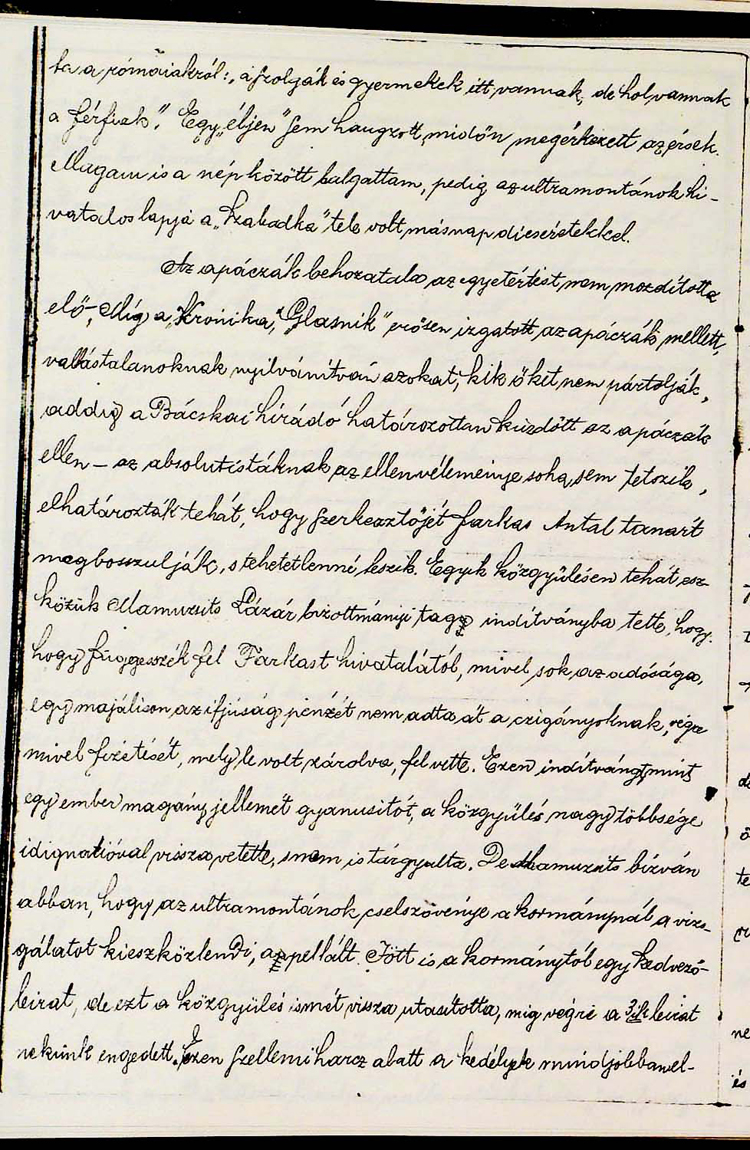 ta a rómaiakról: „a szolgák és gyermekek itt vannak, de hol vannak
a férfiak". Egy „éljen" sem hangzott, midőn megérkezett az érsek.
Magam is a nép között balgattam, pedig az ultramontánok hi-
vatalos lapja a „Szabadka" tele volt, másnap dicséretekkel.
Az apáczák behozatala az egyetértést, nem mozdította
elő, Míg a „Kronika," „Glasnik" erősen izgatott az apáczák mellett,
vallástalanoknak nyilvánítván azokat, kik őket nem pártolják,
addig a Bácskai hiradó határozottan küzdött az apáczák
ellen – az absolutistáknak az ellenvéleménye soha sem tetszik,
elhatározták tehát, hogy szerkesztőjét Farkas Antal tanárt
megbosszulják, s tehetetlenné teszik. Egyik közgyülésen tehát esz-
közük Mamuzsits Lázár bizottmányi tag indítványba tette, hogy
hogy függesszék fel Farkast hivatalától, mivel sok az adósága,
egy majálison az ifjúság pénzét nem adta át a czigányoknak, végre
mivel fizetését, mely le volt zárolva, fel vette. Ezen indítványt, mint
egy ember magány jellemét gyanusitót, a közgyülés nagy többsége
idignatióval vissza vetette, s nem is tárgyalta. De Mamuzsits bízván
abban, hogy az ultramontánok cselszövénye a kormánynál a vizs-
gálatot kieszközlendi, appellált. Jött is a kormánytól egy kedvező
leirat, de ezt a közgyülés ismét vissza utasította, mig végre a 3ik leirat
nekünk engedett. Ezen szellemi harcz alatt a kedélyek mindjobban el-